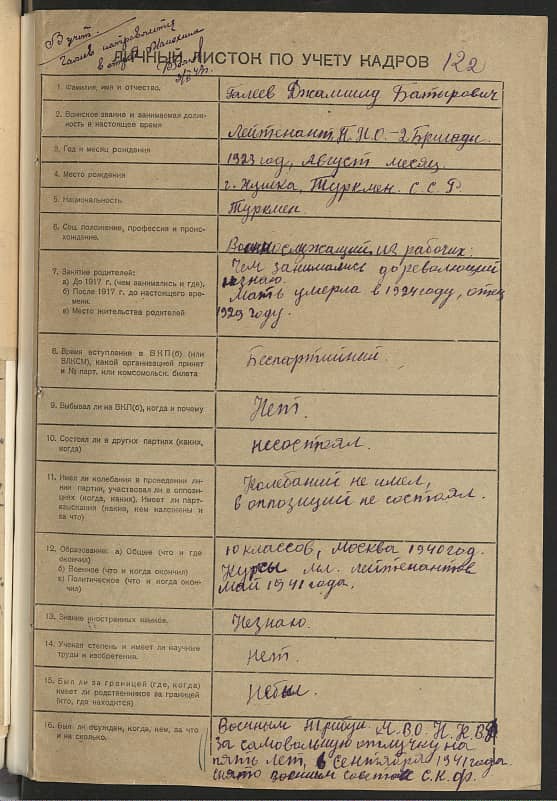 В учет.
ЛИЧНЫЙ ЛИСТОК ПО УЧЕТУ КАДРОВ 122
1. Фамилия, имя и отчество.
Галеев Джамшид Батырович
2. Воинское звание и занимаемая долж-
ность в настоящее время
Лейтенант, К.П.О.-2 Бригады.
3. Год и месяц рождения
1923 год, Август месяц
4. Место рождения
г. Кушка, Туркмен. С.С.Р.
5. Национальность
Туркмен.
6. Соц. положение, профессия и проис-
хождение.
Военнослужащий, из рабочих.
7. Занятие родителей:
а) До 1917 г. (чем занимались и где),
б) После 1917 г. до настоящего вре-
мени.
в) Место жительства родителей
Чем занимались до революций
незнаю.
Мать умерла в 1924 году, отец
1929 году.
8. Время вступления в ВКП(б) (или
ВЛКСМ), какой организацией принят
и № парт. или комсомольск. билета
Беспартийний.
9. Выбывал ли из ВКП(б), когда и почему
Нет.
10. Состоял ли в других партиях (каких,
когда)
несостоял.
11. Имел ли колебания в проведении ли-
нии партии, участвовал ли в оппози-
циях (когда, каких). Имеет ли парт-
взыскания (какие, кем наложены и
за что)
Колебаний не имел,
в оппозиций не состоял.
12. Образование: а) Общее (что и где
окончил)
б) Военное (что и когда окончил)
в) Политическое (что и когда окон-
чил)
10 классов, Москва 1940 год.
Курсы мл. лейтенантов
Май 1941 года.
13. Знание иностранных языков.
Незнаю.
14. Ученая степень и имеет ли научные
труды и изобретения.
Нет.
15. Был ли за границей (где, когда)
имеет ли родственников за границей
(кто, где находится)
Небыл.
16. Был ли осужден, когда, кем, за что
и на сколько.
Военным Трибун. М.В.О. Н.К.В.Д
За самовольную отлучку на
пять лет, в сентября 1941 года.
снято военным советом С.К.Ф.